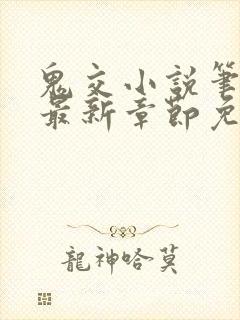 鬼交小説筆
最新章節免
龍神哈莫